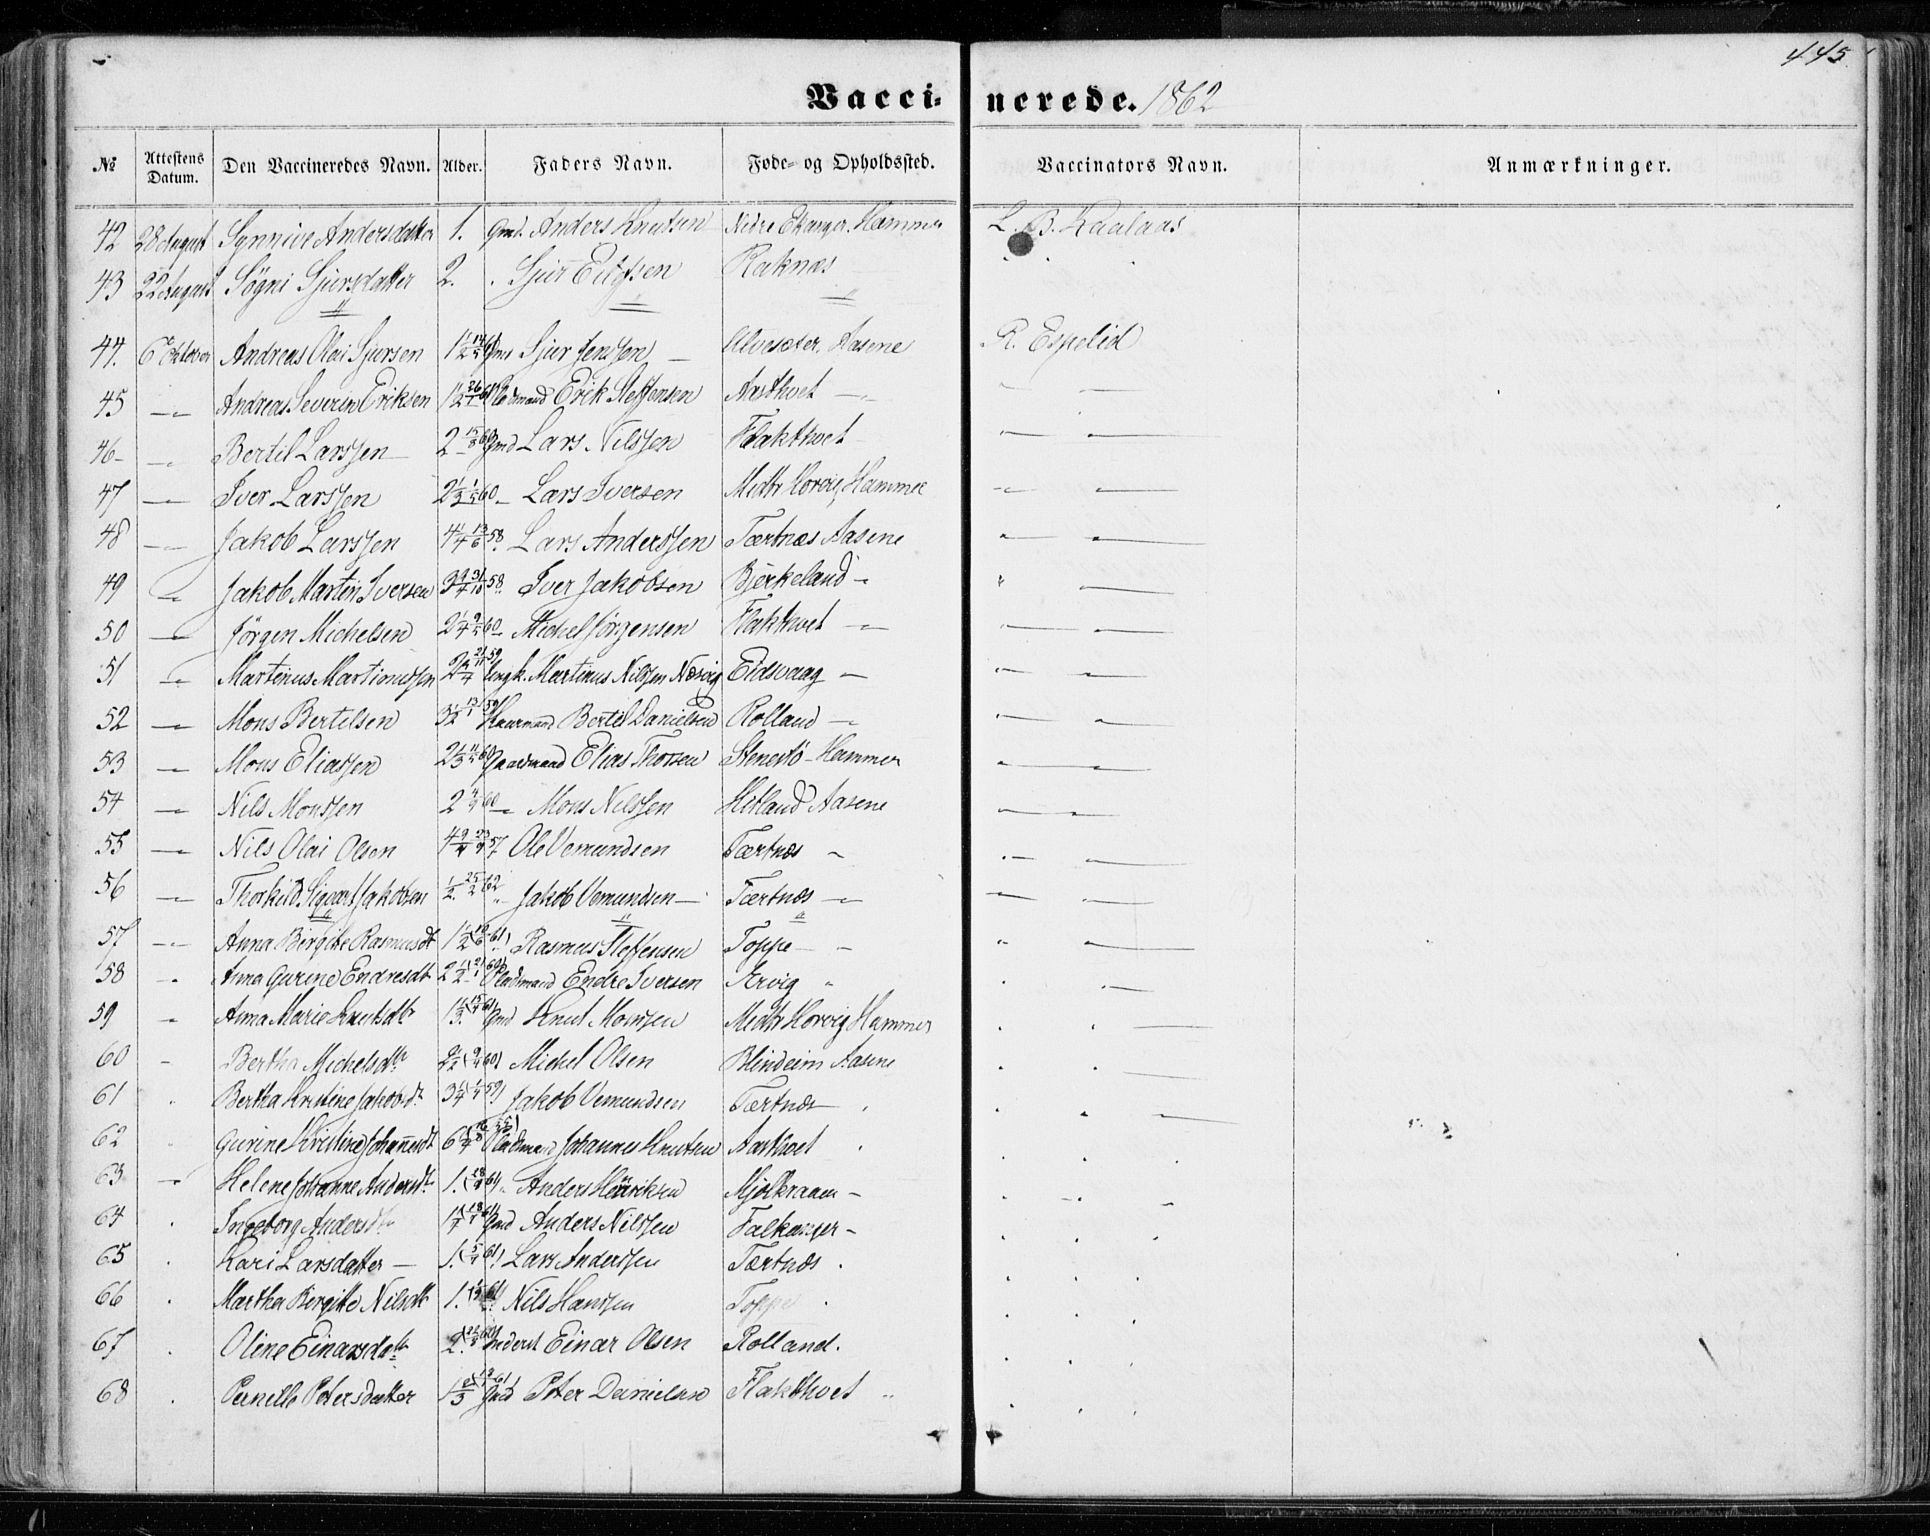 445
Vaccinerede. 1862
No
Attestens Datum.
Den Vaccineredes Navn.
Alder.
Faders Navn.
Føde- og Opholdssted.
Vaccinators Navn.
Anmærkninger.
42 28 August Synnive Andersdatter 1. Gmd. Anders Knutsen Nedre Ekanger, Hammer L. B. Kaalaas
43 22 August Sögni Sjursdatter 2. Sjur Raknæs
44. 6 Oktober Andreas Olai Sjursen 1 1/2 Gmd Sjur Jenssen — Alvesæter, Aasene R. Espelid
45 — Andreas Severin Eriksen 1 1/2 Pladsmand Erik Steffensen Aasthvet —
46 — Bertel Larssen — 2 15/8 60 Gmd Lars Nilssen Flakthvet
47 — Iver Larssen 2 1/3 1/5 60 — Lars Iversen Midtr Horvig, Hammer
48 — Jakob Larssen 4 1/4 13/6 58 Lars Anderssen Tærtnæs Aasene
49 — Jakob Martin Iversen 3 3/4 31/10 58 Iver Jakobsen Bjørkeland —
50 — Jörgen Michelsen 2 1/4 60 — Michel Jörgensen Flakthvet —
51 — Martinus Martinussen 2 3/4 21/11 59 Ungk. Martinus Nilssen Næsvig Eidsvaag —
52 — Mons Bertelsen 3 1/2 13/1 59 Huusmand Bertel Danielsen Rolland —
53 — Mons Eliassen 2 1/3 60 Gaardmand Elias Thorsen Stenestö — Hammer
54 — Nils Monssen 2 60 — Mons Nilssen Hetland Aasene
55 — Nils Olai Olsen 4 3/4 57 Ole Vemundsen Tærtnæs
56 — Thorkild Sigvart Jakobsen 1/2 25/2 62 " Jakob Vemundsen — Tærtnæs —
57 — Anna Birgitte Rasmusdt 1 1/2 61) Rasmus Steffensen Toppe —
58 — Anna Gurine Endresdt 2 1/2 60) Pladsmand Endre Iversen Ervig "
59 — Anna Marie Knutsdtr 1 1/3 61 Gmd Knut Monsen Midtr Horvig Hammer
60 — Bertha Michelsdtr 2 1/2 60) Michel Olsen Blindeim Aasene
61 Bertha Kristine Jakobsdt 3 1/4 59) Jakob Vemundsen Tærtnæs
62 Gurine Kristine Johannesdt 6 Pladsmand Johannes Knutsen Aasthvet
63 — Helene Johanne Andersdt 1. 61) Anders Henriksen Mjølkraaen —
64 Ingeborg Andersdtr 1 Gmd Anders Nilssen Falkanger —
65 Kari Larsdatter — 1. 61) Lars Anderssen Tærtnæs
66 Martha Birgitte Nilsdtr 1. 61) Nils Hanssen Toppe
67 Oline Einarsdatter 2. 60) Inderst Einar Olsen Rolland.
68 Pernille Petersdatter 1 61) Gmd Peter Danielsen Flakthvet "